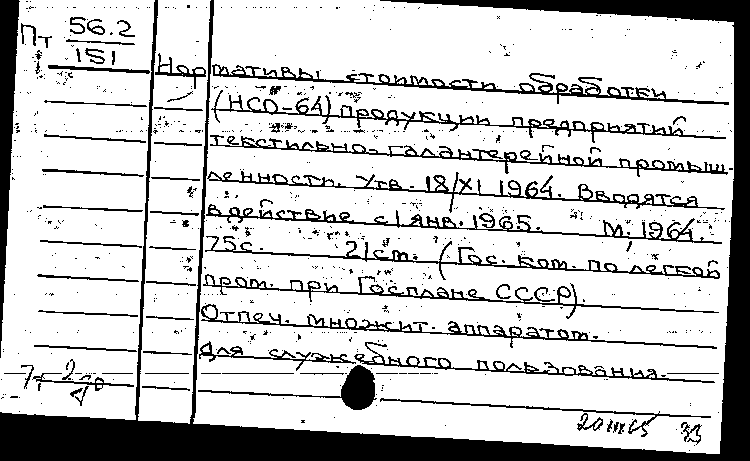 Пт 56.2
151
Нормативы стоимости обработки
(НСО-64) продукции предприятий
текстильно-галантерейной промыш-
ленности. Утв. 18/XI 1964. Вводятся
в действие с 1 янв. 1965. М., 1964.
75с. 21см. (Гос. ком. по легкой
пром. при Госплане СССР).
Отпеч. множит. аппаратом.
Для служебного пользования.